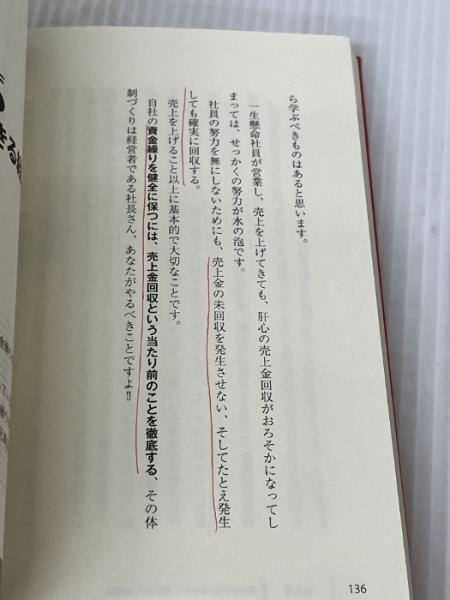 ら学ぶべきものはあると思います。
一生懸命社員が営業し、売上を上げてきても、肝心の売上金回収がおろそかになってし
まっては、せっかくの努力が水の泡です。
社員の努力を無にしないためにも、売上金の未回収を発生させない、そしてたとえ発生
しても確実に回収する。
売上を上げること以上に基本的で大切なことです。
自社の資金繰りを健全に保つには、売上金回収という当たり前のことを徹底する、その体
制づくりは経営者である社長さん、あなたがやるべきことですよ!!
136